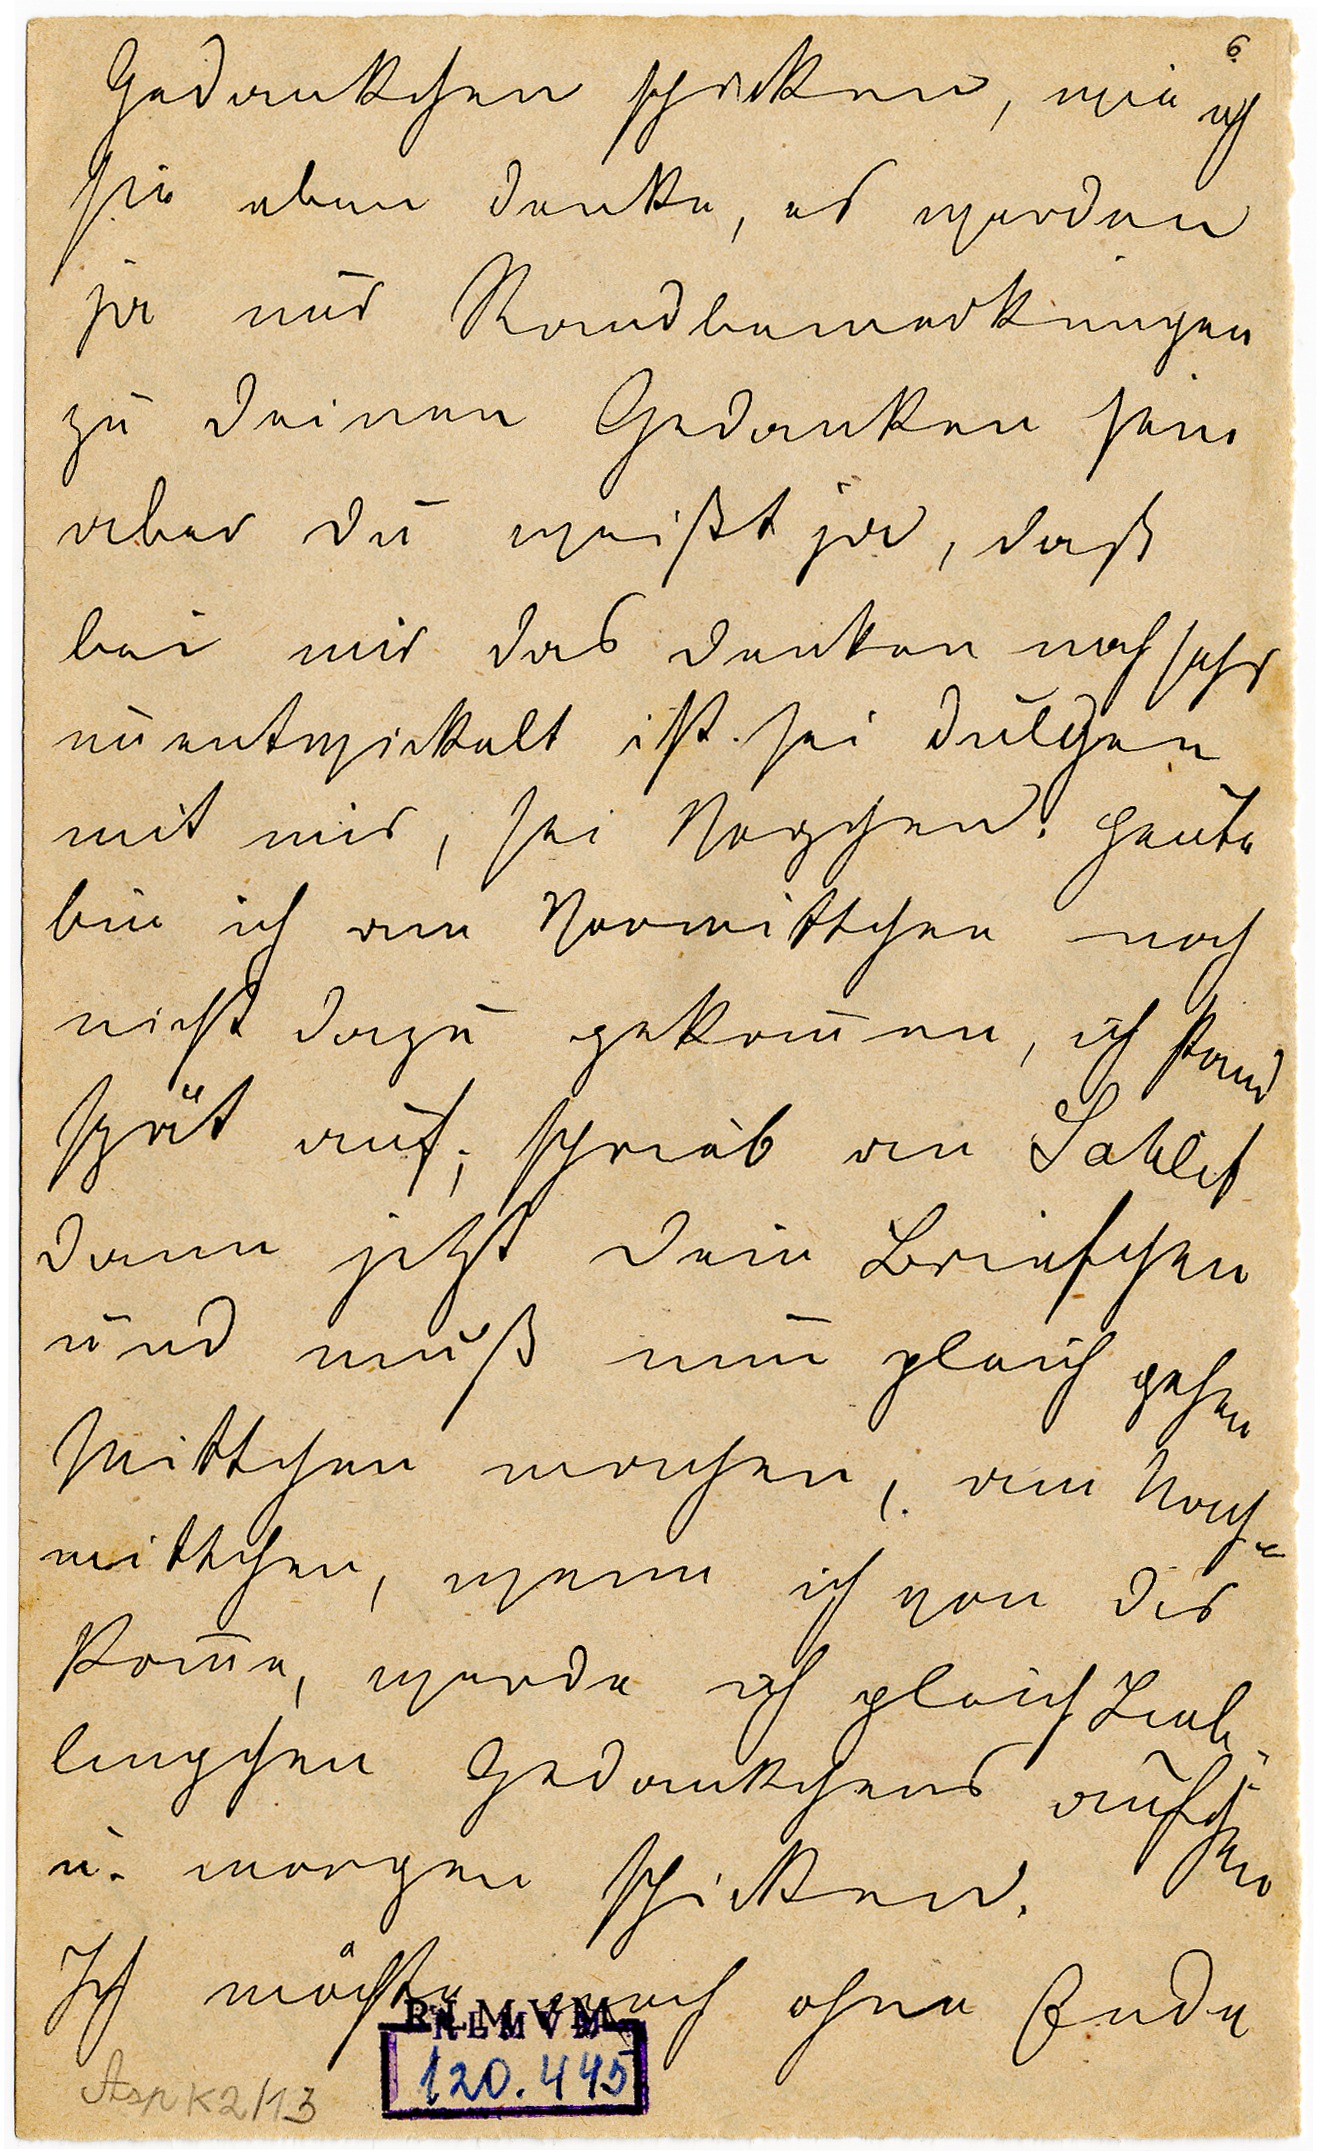 6
Gedankchen schicken, wie ich
sie eben denke, es werden
ja nur Randbemerkungen
zu deinen Gedanken sein
aber du weißt ja, daß
bei mir das denken noch sehr
unentwickelt ist. sei duldchen
mit mir, sei Herzchen. Heute
bin ich am Vormittchen noch
nicht dazu gekom̅en, ich stand
spät auf; schrieb an
dann jetzt dein Briefchen
und muß nun gleich gehen
Mittchen machen, am Nach-
mittchen, wenn ich von dir
kom̅e, werde ich gleich Lieb-
lingchen Gedankchens aufsch
u. morgen schicken.
Ich möchte noch ohne Ende
RLMVM
120.445
Asp K2/13